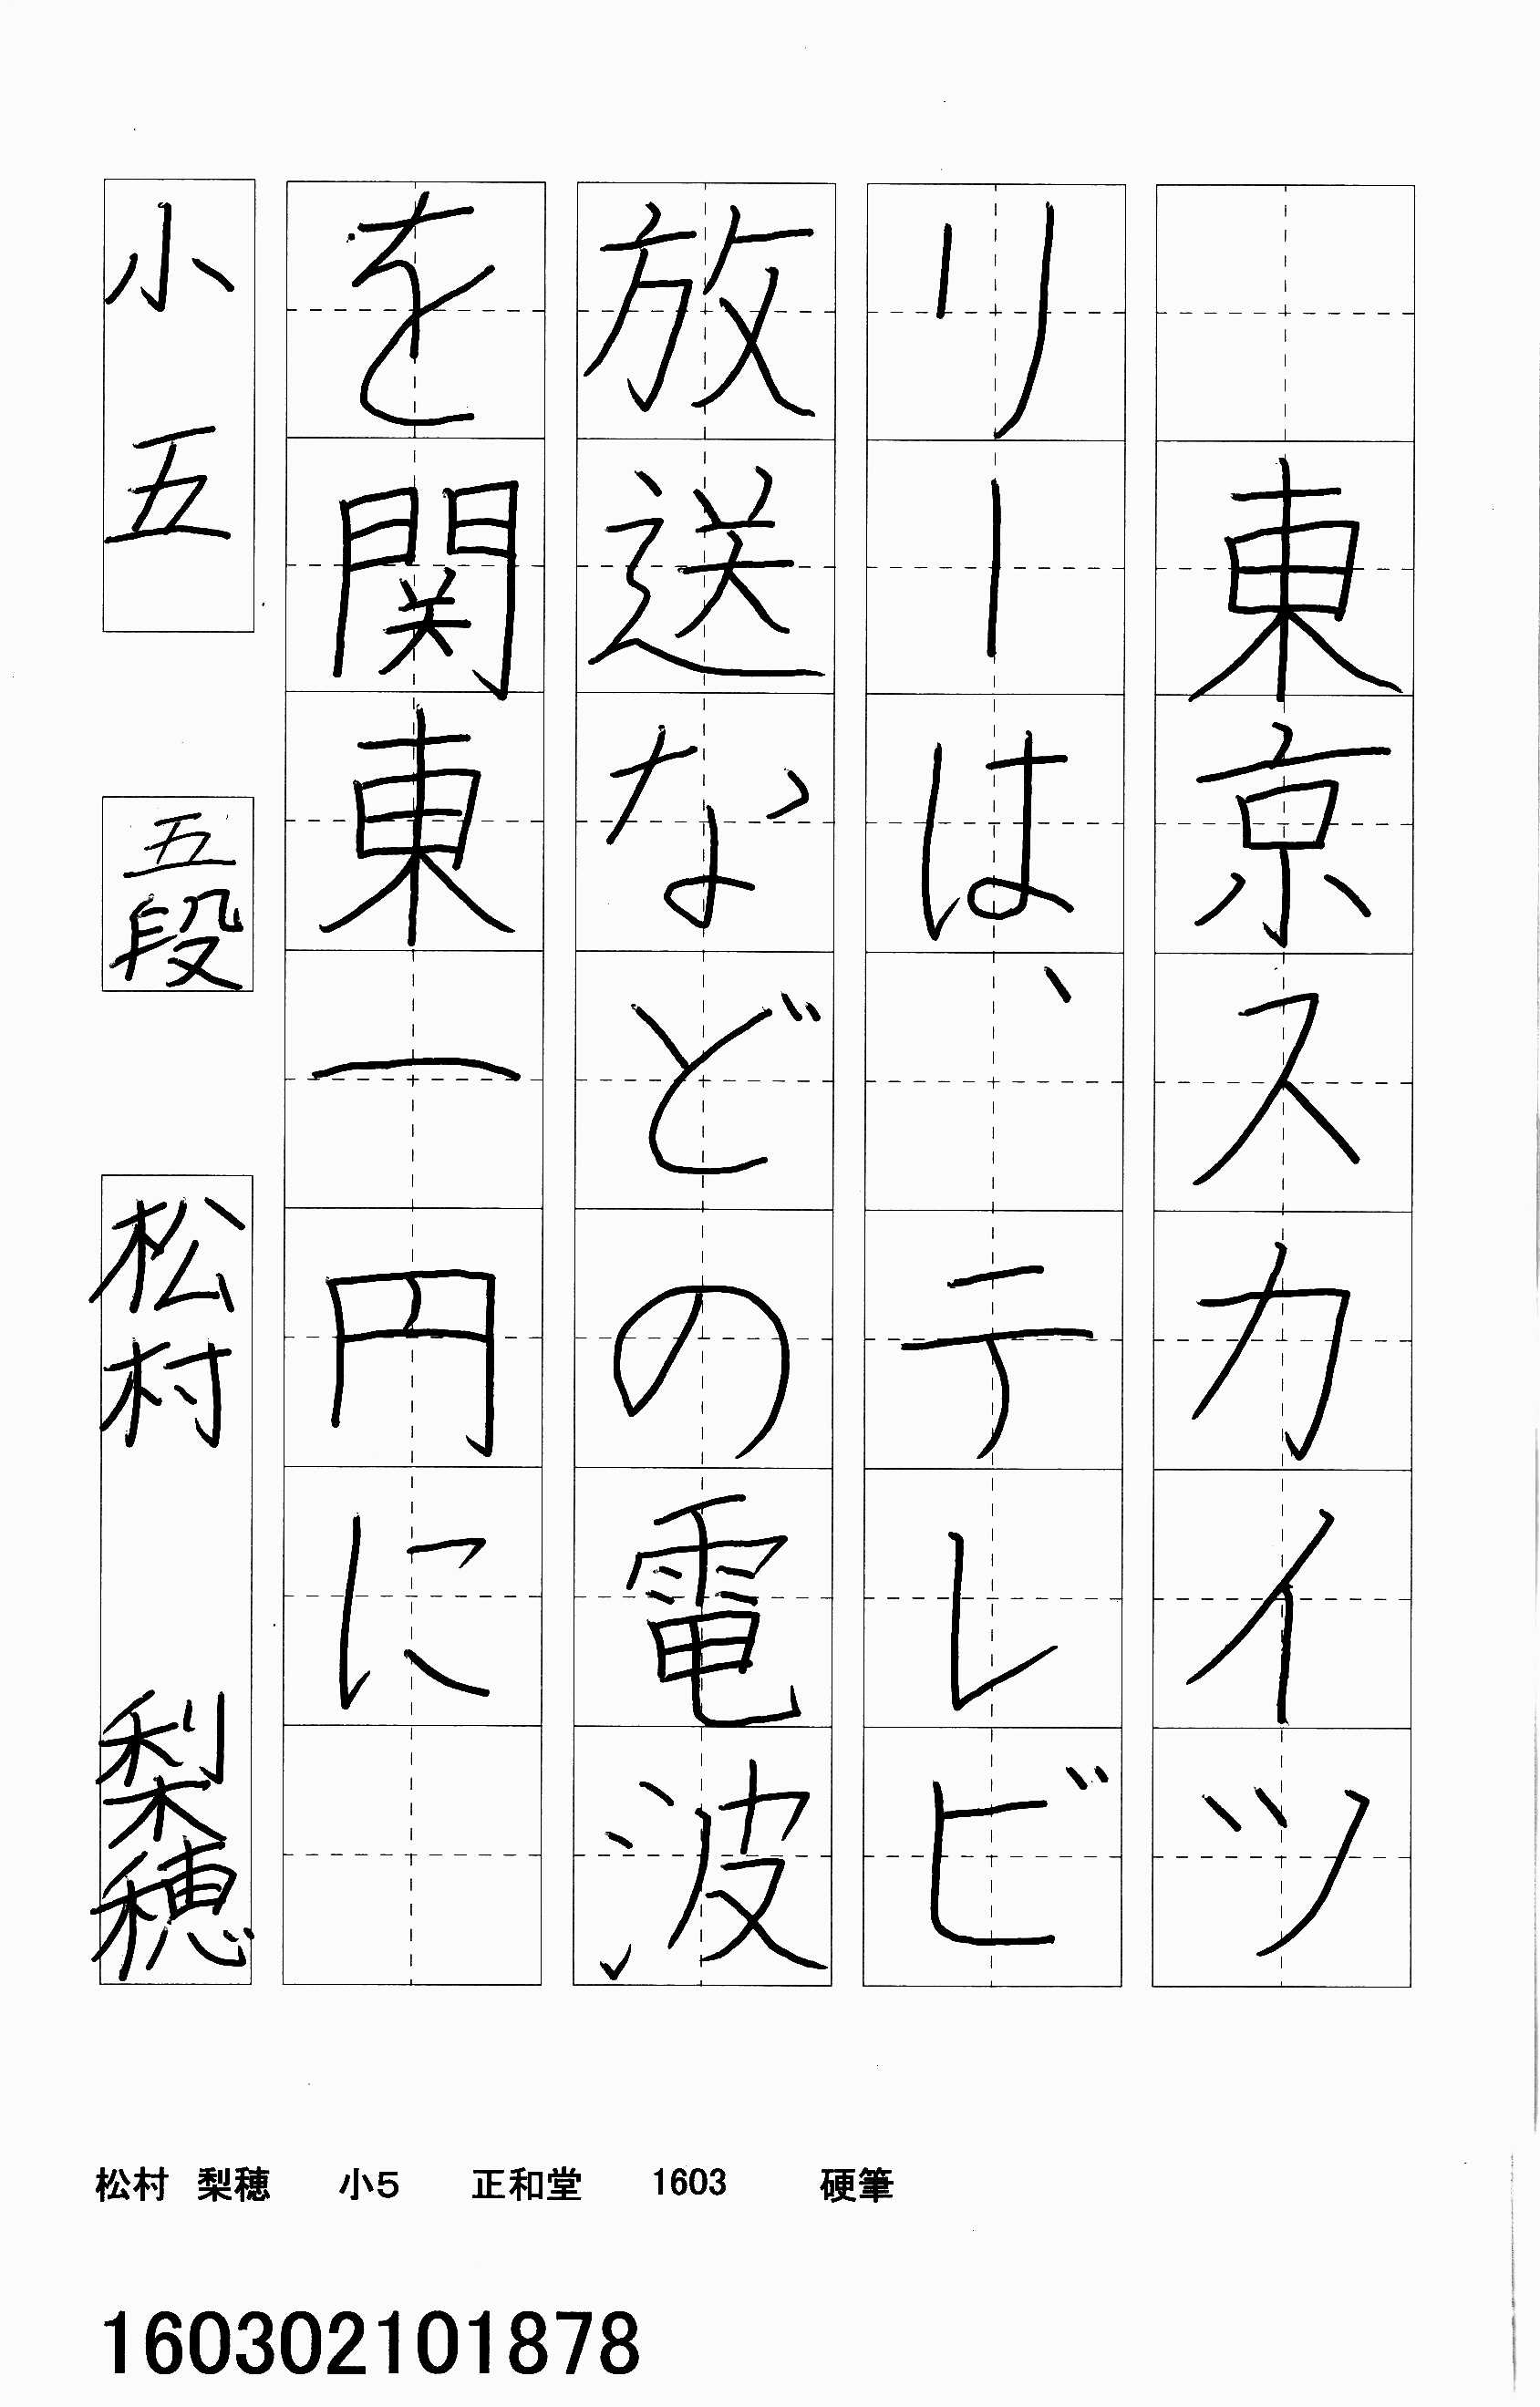 東京スカイツ
リーは、テレビ
放送などの電波
を関東一円に
小五 五段 松村 梨穂
松村 梨穂 小5 正和堂 1603 硬筆
160302101878